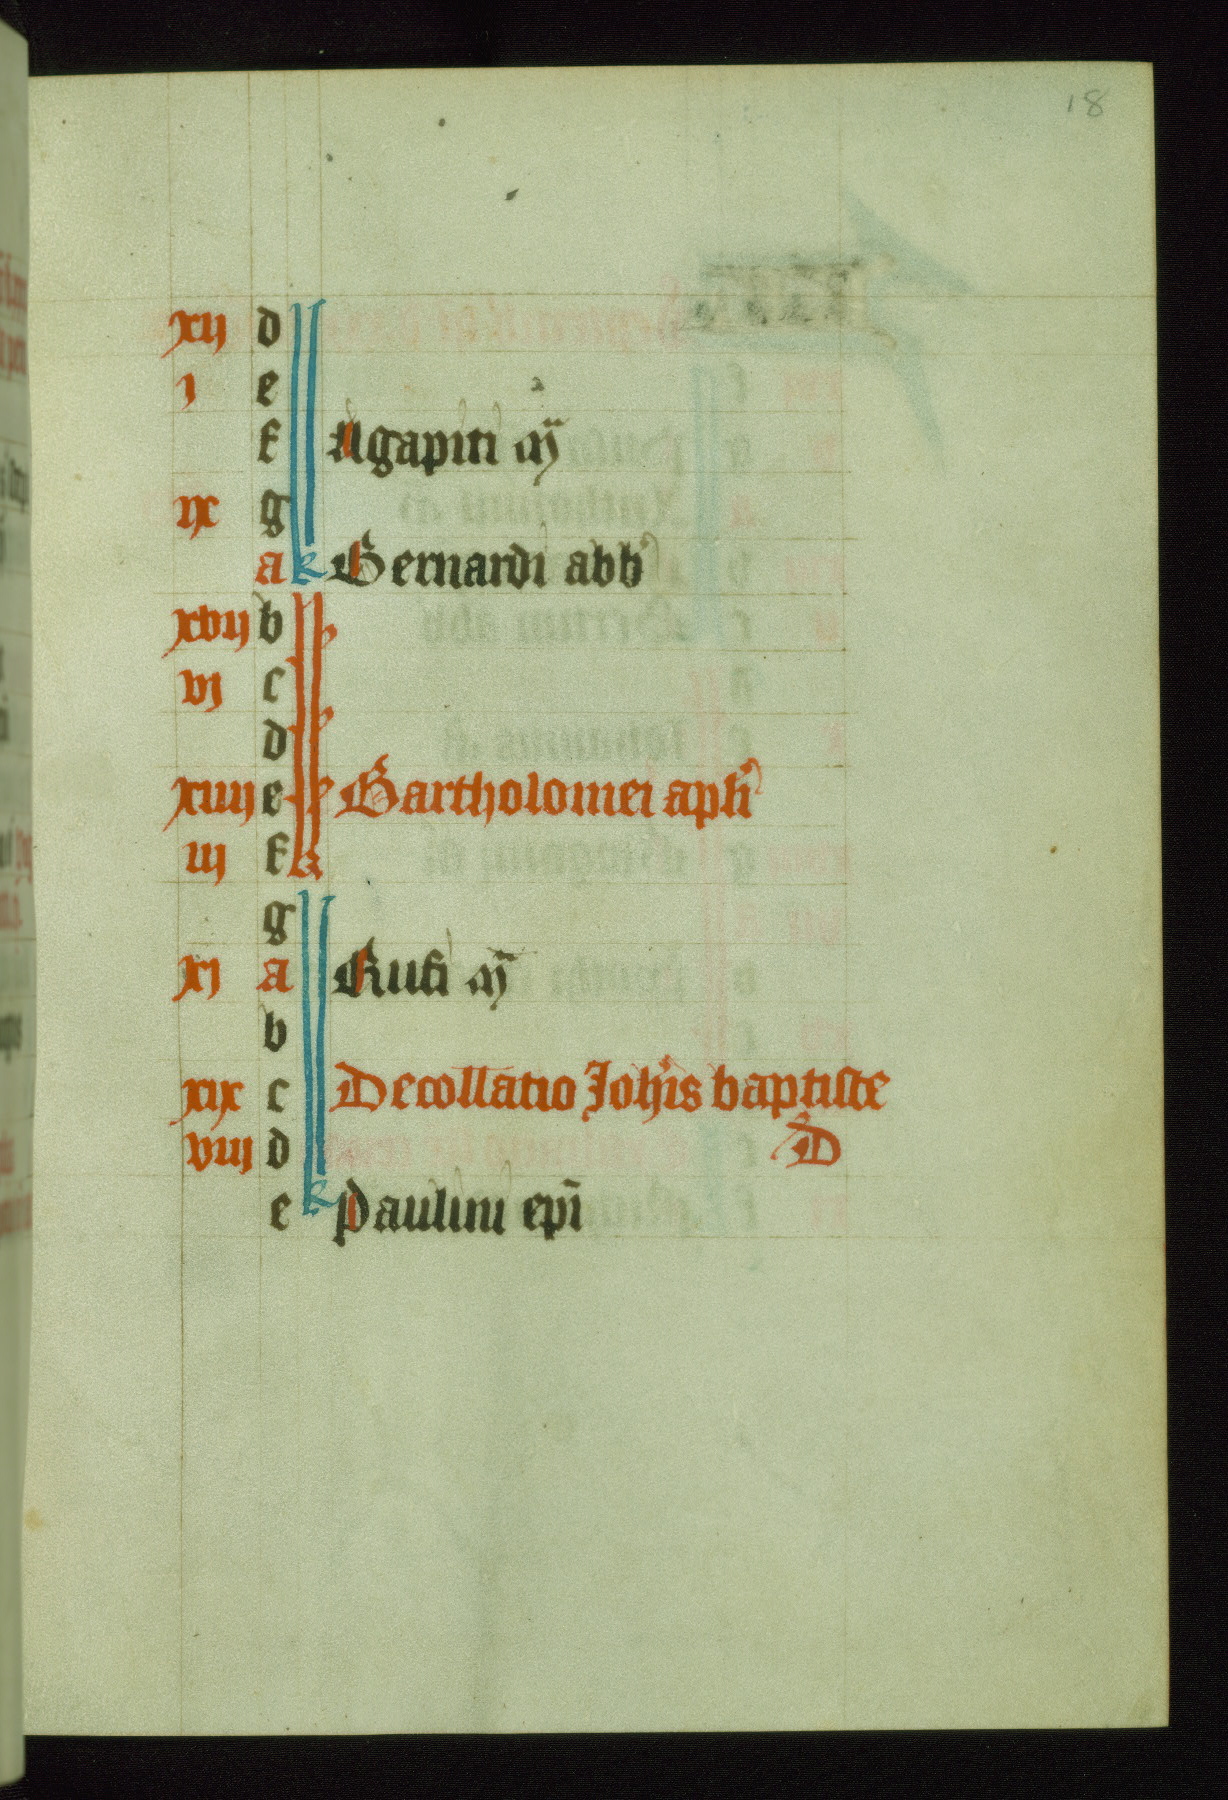 18
xij d
i e
f Agapiti m̄
ix g
a Bernardi abb'
xvij b
vj c
d
xiiij e Bartholomei apli
iij f
g
xj a Rufi m̄
b
xix c Decollatio Joh'is baptiste
viij d D
e Paulini epi